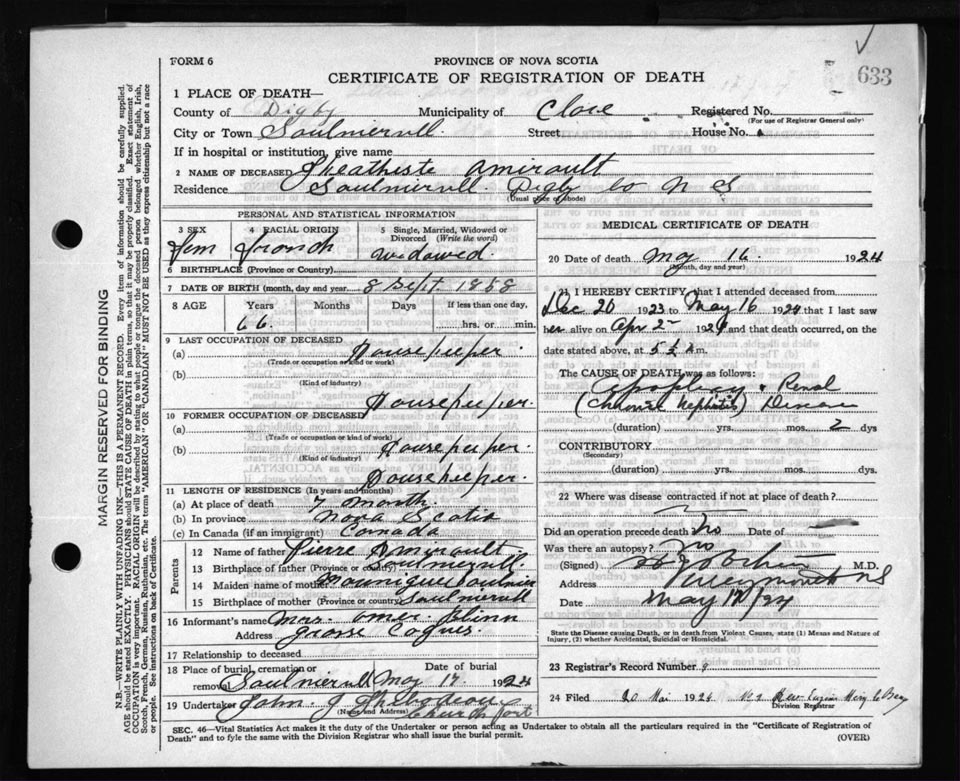 633
FORM 6
PROVINCE OF NOVA SCOTIA
CERTIFICATE OF REGISTRATION OF DEATH
1 PLACE OF DEATH—
County of Digby Municipality of Clare Registered No.
(For use of Registrar General only)
City or Town Saulnierville Street House No.
If in hospital or institution, give name
2 NAME OF DECEASED Amirault
Residence Saulnierville Digby Co N S
(Usual place of abode)
PERSONAL AND STATISTICAL INFORMATION
3 SEX 4 RACIAL ORIGIN 5 Single, Married, Widowed or Divorced (Write the word)
Fem french widowed.
6 BIRTHPLACE (Province or Country)
7 DATE OF BIRTH (month, day and year) 8 Sept. 1858
8 AGE Years Months Days If less than one day,
66. hrs. or min.
9 LAST OCCUPATION OF DECEASED
(a) Housekeeper.
(Trade or occupation or kind of work)
(b)
(Kind of industry)
Housekeeper.
10 FORMER OCCUPATION OF DECEASED
(a)
(Trade or occupation or kind of work)
(b) Housekeeper
(Kind of industry)
Housekeeper.
11 LENGTH OF RESIDENCE (In years and months)
(a) At place of death 7 month
(b) In province Nova Scotia
(c) In Canada (if an immigrant) Canada
Parents
12 Name of father Pierre Amirault
13 Birthplace of father (Province or Country) Saulnierville
14 Maiden name of mother Saulnier
15 Birthplace of mother (Province or Country) Saulnierville
16 Informant's name Mrs. Omer Blinn
Address Grosse Coques.
17 Relationship to deceased
18 Place of burial, cremation or removal Saulnierville Date of burial May 17 1924
19 Undertaker John J
(Name and Address) Church Point
MEDICAL CERTIFICATE OF DEATH
20 Date of death May 16. 1924
(Month, day and year)
21 I HEREBY CERTIFY, that I attended deceased from
Dec 20 1923 to May 16 1924 that I last saw
her alive on Apr 2 1924 and that death occurred, on the
date stated above, at 5 1/2 m.
The CAUSE OF DEATH was as follows:
Apoplexy & Renal
(Chronic Nephritis) Disease
(duration) yrs. mos. 2 dys
CONTRIBUTORY
(Secondary)
(duration) yrs. mos. dys.
22 Where was disease contracted if not at place of death?
Did an operation precede death No Date of
Was there an autopsy? No
(Signed) M.D.
Address Weymouth NS
Date May 17/24
State the Disease causing Death, or in death from Violent Causes, state (1) Means and Nature of
Injury, (2) whether Accidental, Suicidal or Homicidal.
23 Registrar's Record Number 9
24 Filed 20 Mai 1924
Division Registrar
SEC. 46—Vital Statistics Act makes it the duty of the Undertaker or person acting as Undertaker to obtain all the particulars required in the "Certificate of Registration of
Death" and to fyle the same with the Division Registrar who shall issue the burial permit.
(OVER)
MARGIN RESERVED FOR BINDING
N.B.—WRITE PLAINLY WITH UNFADING INK—THIS IS A PERMANENT RECORD. Every item of information should be carefully supplied.
AGE should be stated EXACTLY. PHYSICIANS should STATE CAUSE OF DEATH in plain terms, so that it may be properly classified. Exact statement of
OCCUPATION is very important. RACIAL ORIGIN will be described by stating to what people or tongue the deceased person belonged whether English, Irish,
Scotch, French, German, Russian, Ruthenian, etc. The terms "AMERICAN" or "CANADIAN" MUST NOT BE USED as they express citizenship but not a race
or people. See instructions on back of Certificate.